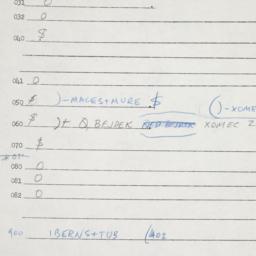 031 0
032 0
040 $
041 0
050 $ )-MACES+MURE $ ()-XOME
060 $ )+ Q BEJDEK XOMEC 2
070 $
080 0
081 0
082 0
400 IBERNS+TUB (402